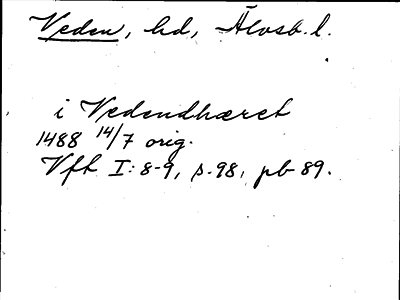 Veden, hd, Älvsb. l.
i Vedendhæret
1488 14/7 orig.
Vft I: 8-9, s. 98, pb 89.